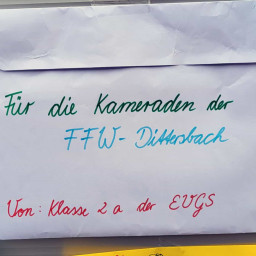 Für die Kameraden der
FFW-Dittersbach
Von: Klasse 2a der EVGS